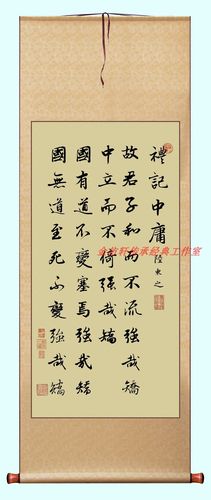 禮記中庸
陸柬之
故君子和而不流強哉矯
中立而不倚強哉矯
國有道不變塞焉強哉矯
國無道至死不變強哉矯
传承经典工作室